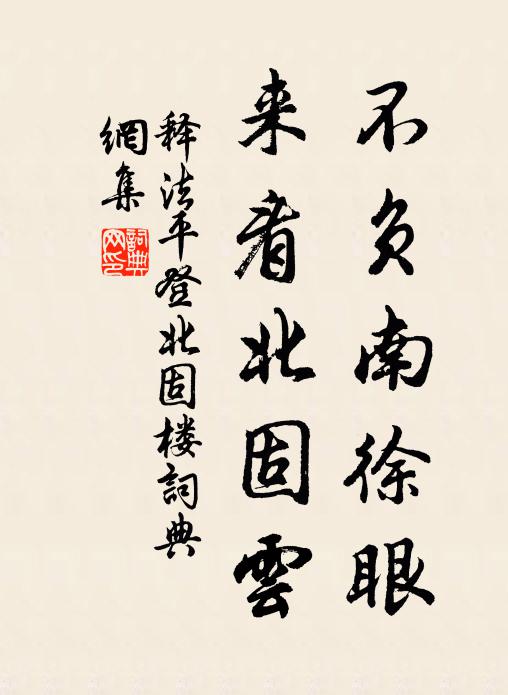 不负南徐眼
来看北固雲
释法平登北固楼詞典
網集
詞典
网印